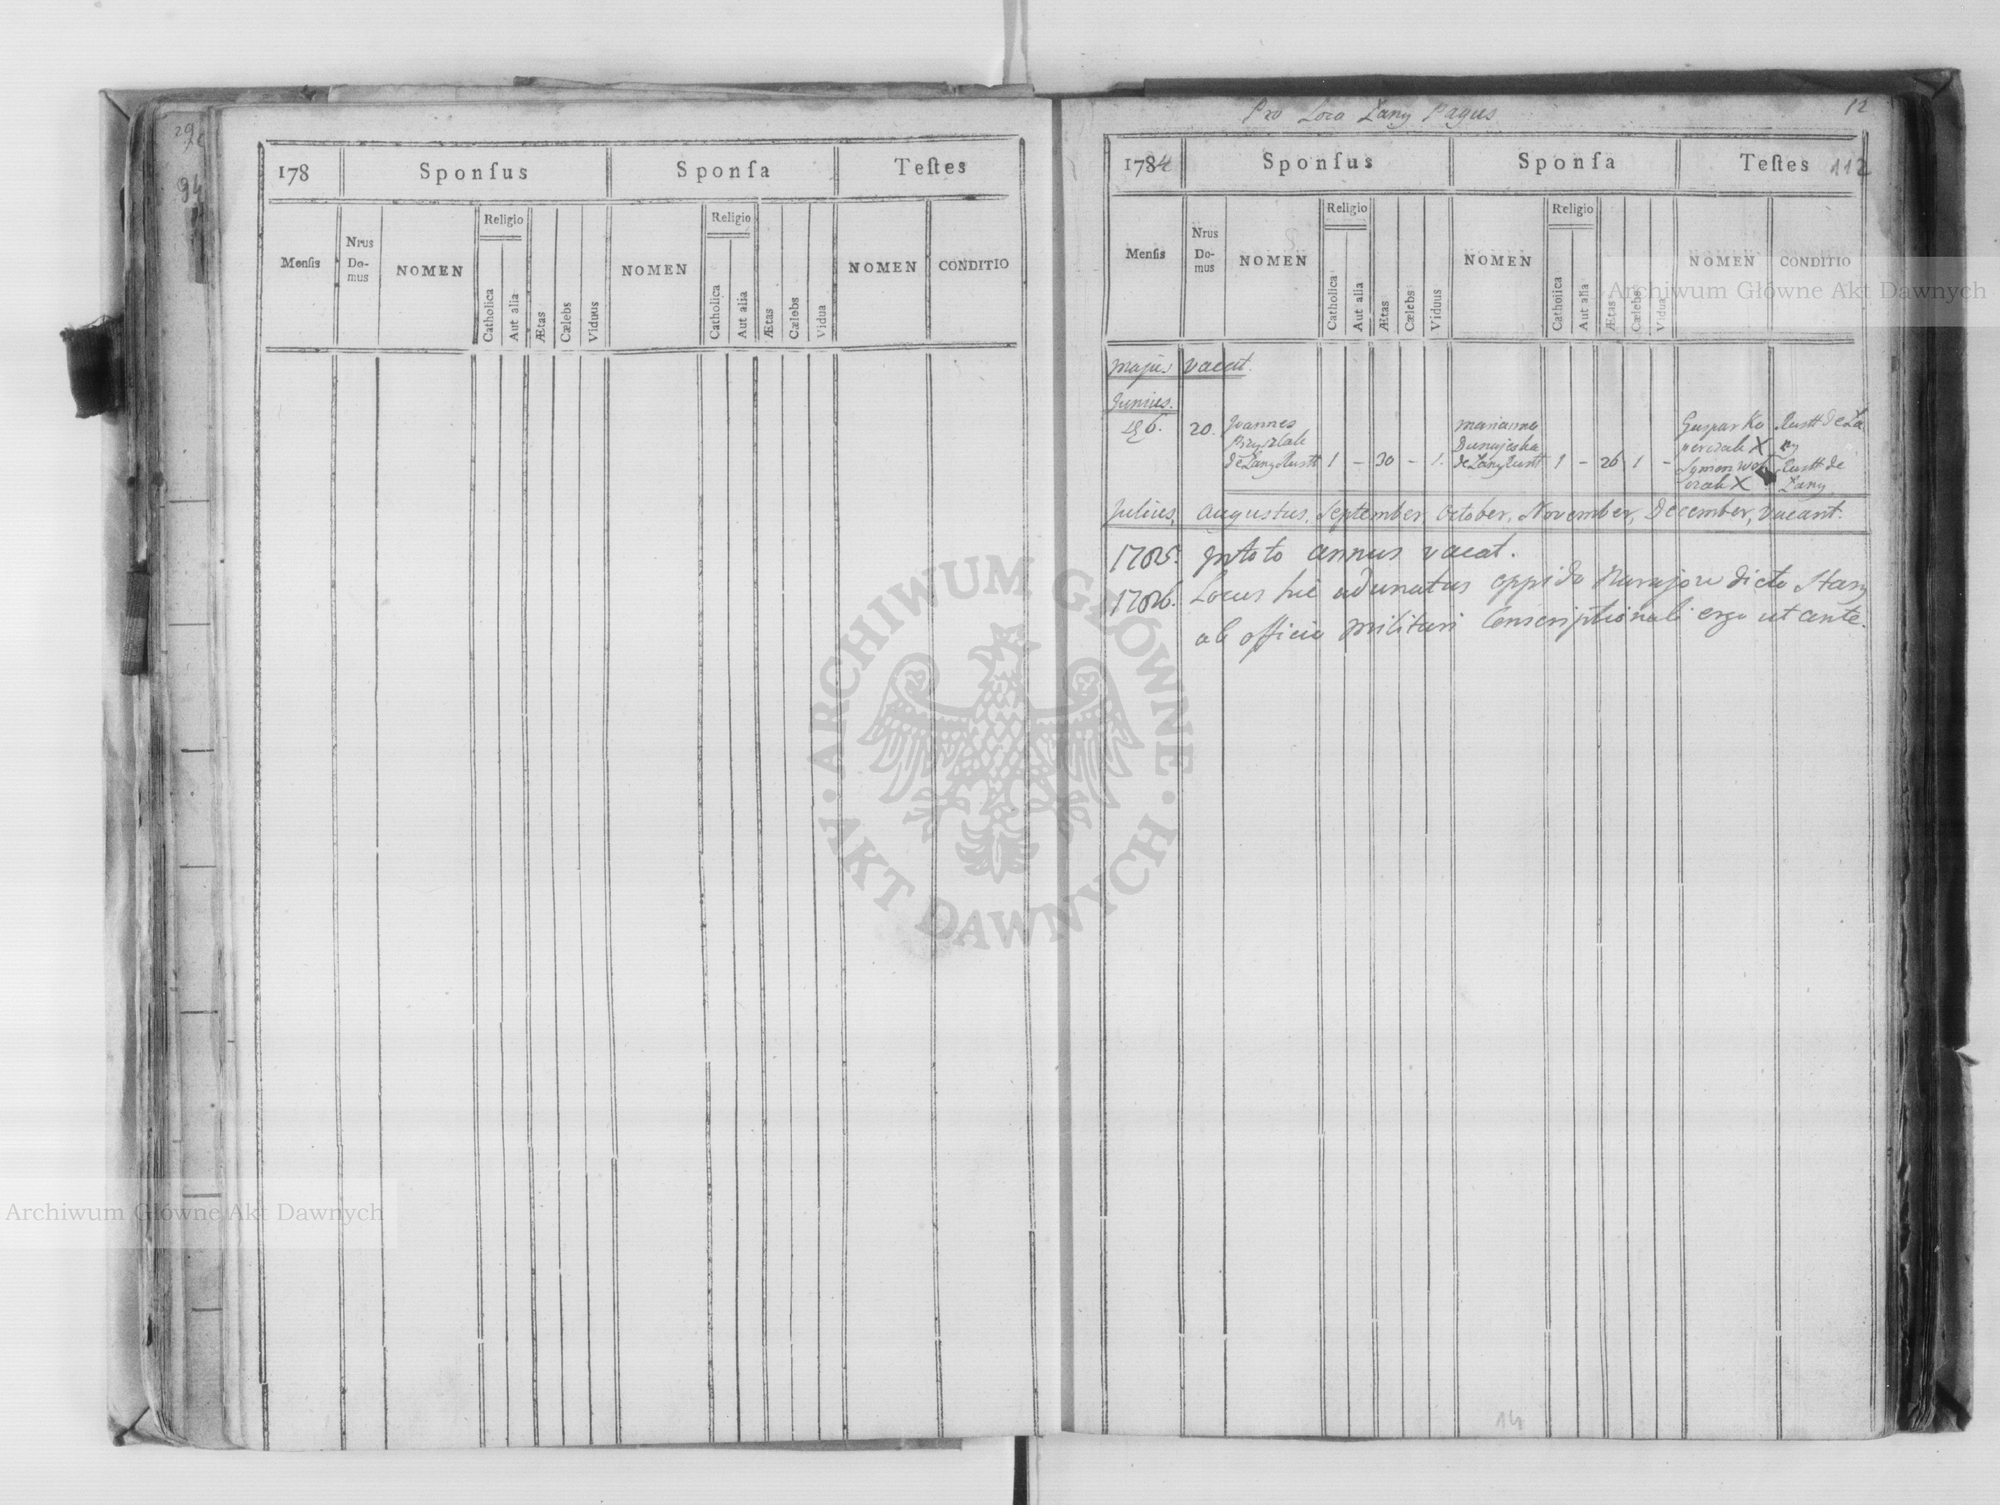 29
94
178
Sponſus
Sponſa
Teſtes
Menſis
Nrus Do-mus
NOMEN
Religio
Catholica
Aut alia
Ætas
Cælebs
Viduus
NOMEN
Religio
Catholica
Aut alia
Ætas
Cælebs
Vidua
NOMEN
CONDITIO
Pro Loco Łany Pagus
12
1784
Sponſus
Sponſa
Teſtes
112
Menſis
Nrus Do-mus
NOMEN
Religio
Catholica
Aut alia
Ætas
Cælebs
Viduus
NOMEN
Religio
Catholica
Aut alia
Ætas
Cælebs
Vidua
NOMEN
CONDITIO
Majus vacat.
Junius.
20. Joannes
de Łany Rustt 1 - 30 - 1.
Marianna
de Łany Rustt 1 - 26 1 -
Gaspar Ko
X
Symon
X
Rustt de Ła
ny
Rustt de
Łany
Julius, Augustus, September, October, November, December, vacant.
1785. In toto annus vacat.
1786. Locus hic adunatus oppido dicto Stary
ab officio militari Conscriptionali ergo ut ante.
14
Archiwum Główne Akt Dawnych
Archiwum Główne Akt Dawnych
ARCHIWUM GŁÓWNE · AKT DAWNYCH ·